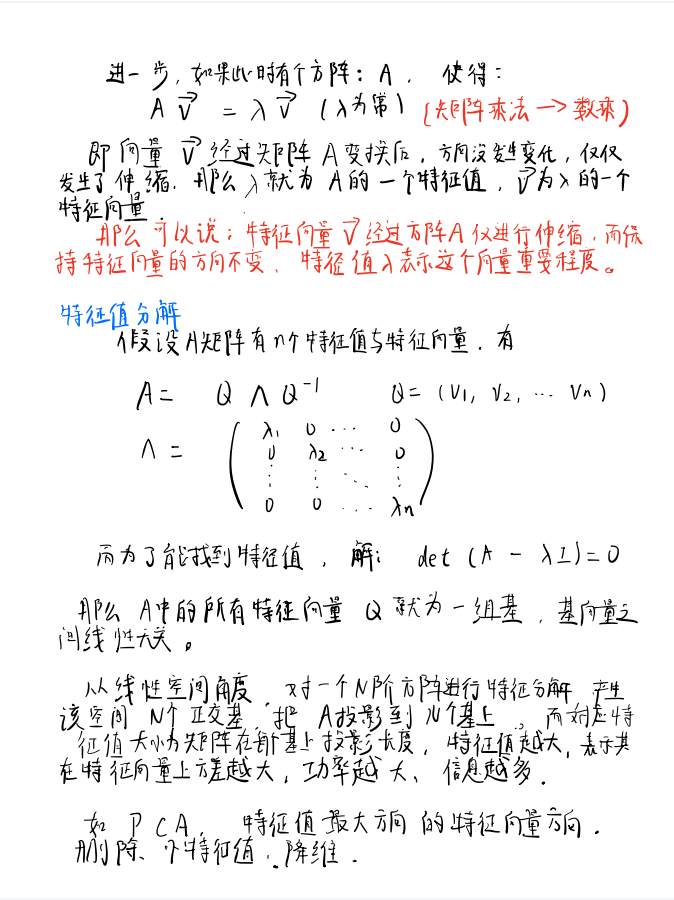 进一步，如果此时有个方阵：A， 使得：
A v⃗ = λ v⃗ （λ为常）（矩阵乘法 → 数乘）
即向量 v⃗ 经过矩阵 A 变换后，方向没发生变化，仅仅
发生了伸缩. 那么 λ 就为 A的一个特征值，v⃗为λ的一个
特征向量.
那么可以说：特征向量 v⃗ 经过方阵A仅进行伸缩，而保
持特征向量的方向不变、特征值λ表示这个向量重要程度。
特征值分解
假设A矩阵有n个特征值与特征向量. 有
A = Q Λ Q⁻¹ Q = (V₁, V₂, ··· Vn)
λ₁ 0 ··· 0
Λ = 0 λ₂ ··· 0
⋮ ⋮ ⋱ ⋮
0 0 ··· λn
而为了能找到特征值， 解： det (A - λI) = 0
那么 A中的所有特征向量 Q 就为一组基，基向量之
间线性无关。
从线性空间角度，对一个N阶方阵进行特征分解 产生
该空间 N个正交基，把 A投影到N个基上， 而对应特
征值大小为矩阵在每个基上投影长度，特征值越大，表示其
在特征向量上方差越大，功率越大、信息越多.
如 PCA， 特征值最大方向的特征向量方向.
删除、小特征值.降维.